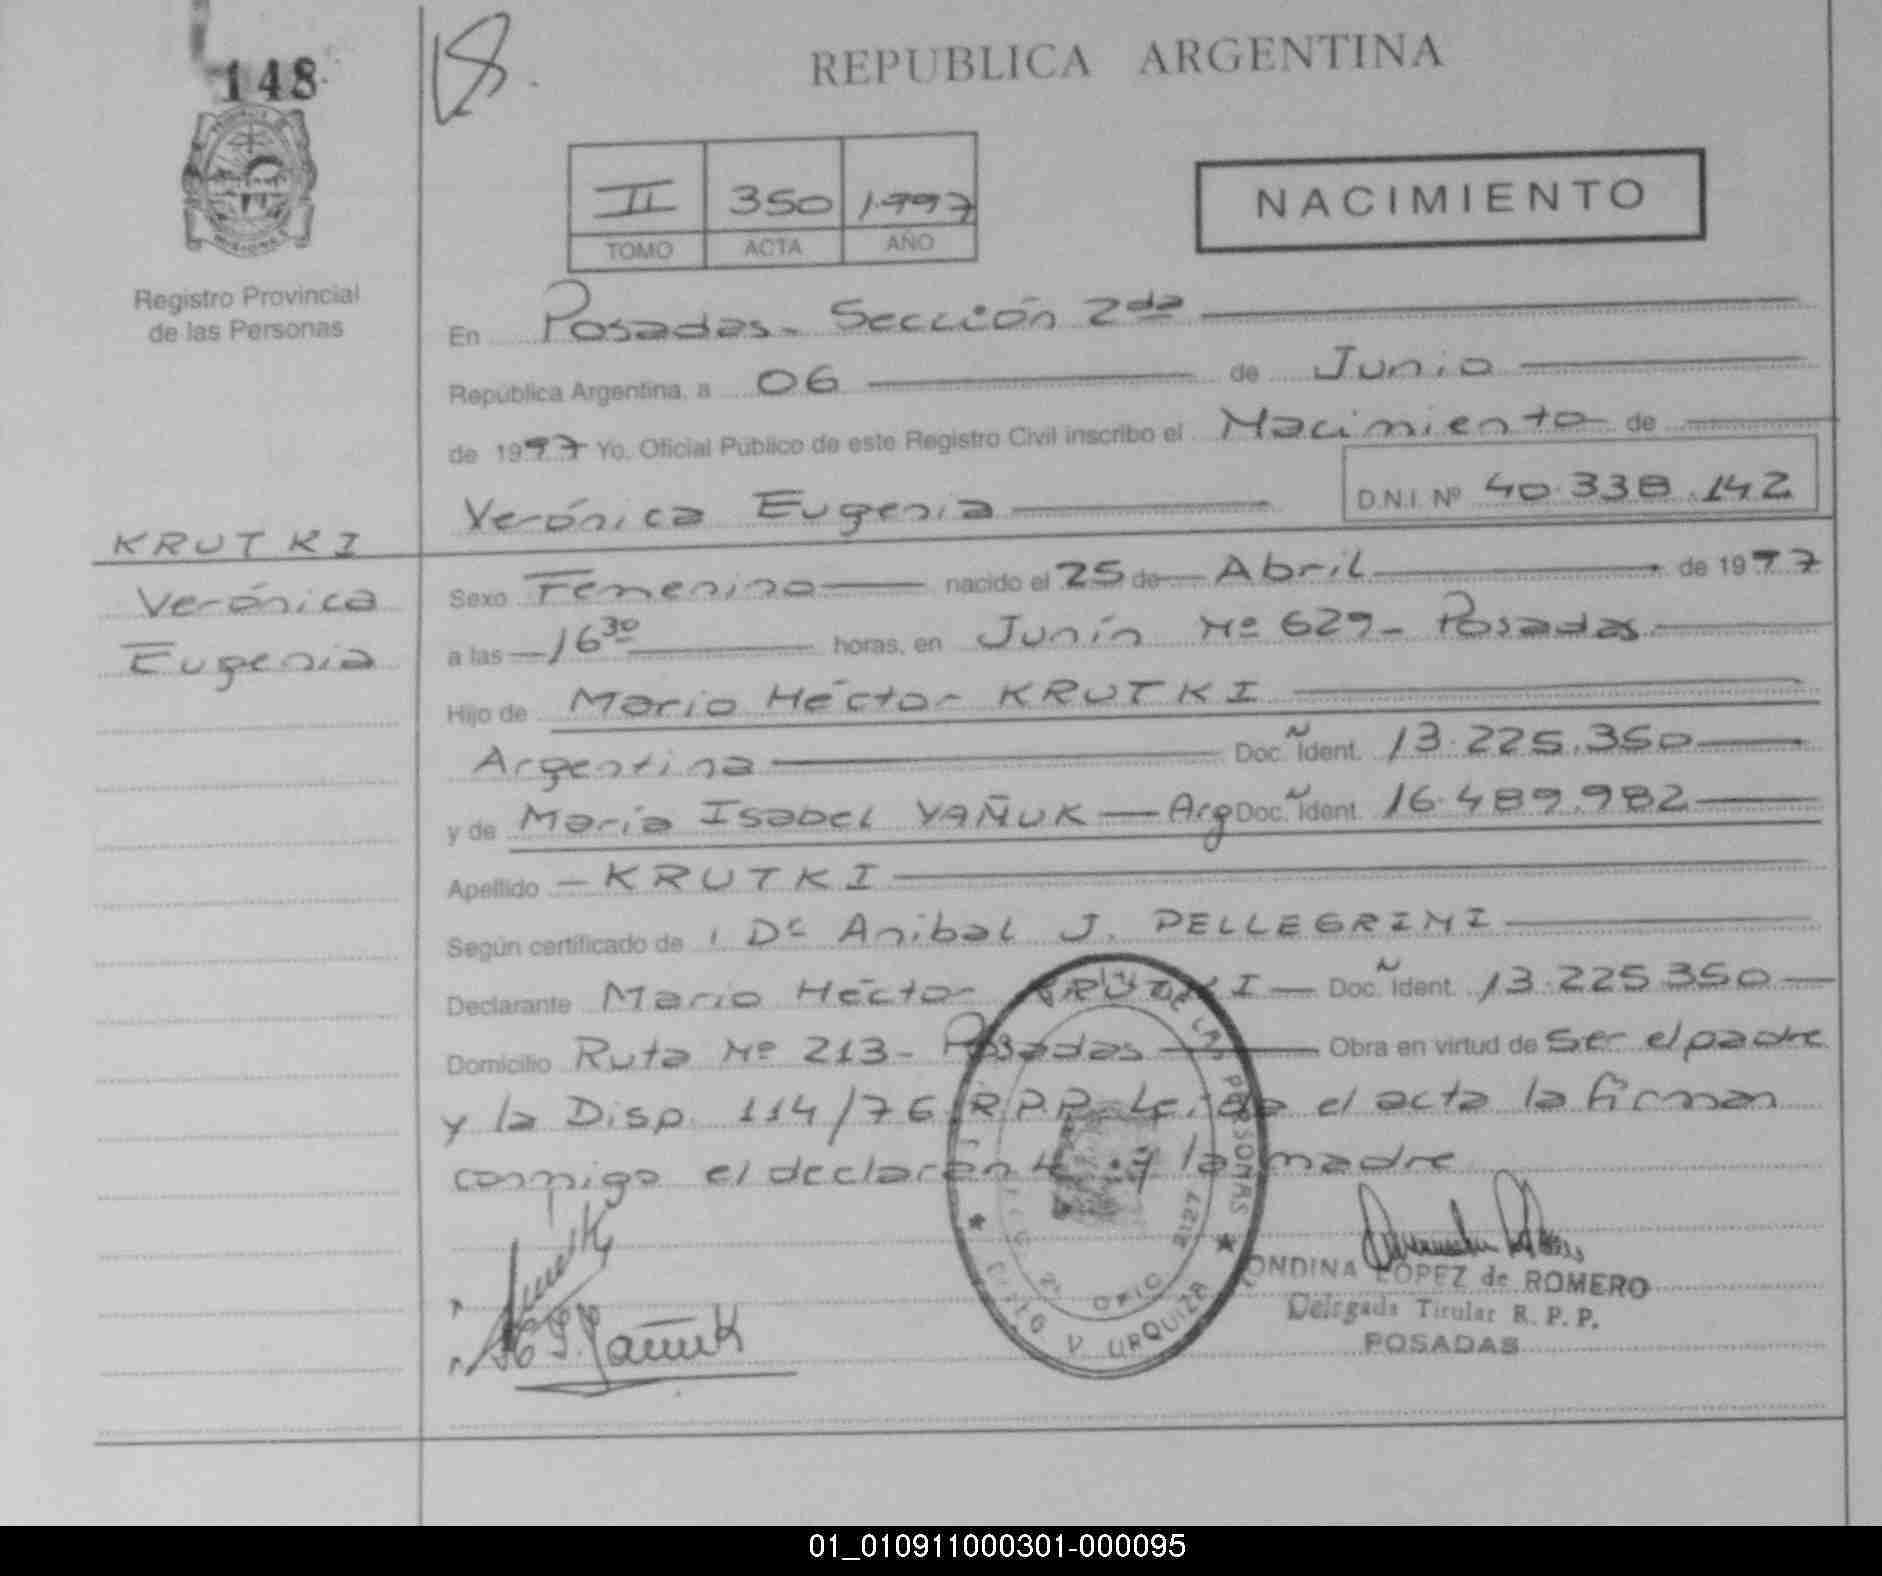 148
REPUBLICA ARGENTINA
II 350 1.997
TOMO ACTA AÑO
NACIMIENTO
Registro Provincial
de las Personas
En Posadas - Sección 2da
República Argentina, a 06 de Junio
de 1997 Yo, Oficial Público de este Registro Civil inscribo el Nacimiento de
Verónica Eugenia D.N.I. Nº 40.338.142
KRUTKI
Verónica
Eugenia
Sexo Femenino nacido el 25 de Abril de 1997
a las 16 30 horas, en Junín Nº 629 - Posadas
Hijo de Mario Héctor KRUTKI
Argentina Doc. Ident. 13.225.350
y de María Isabel YAÑUK - Arg Doc. Ident. 16.489.982
Apellido - KRUTKI
Según certificado de Dr Anibal J. PELLEGRINI
Declarante Mario Héctor KRUTKI - Doc. Ident. 13.225.350
Domicilio Ruta Nº 213 - Posadas Obra en virtud de Ser el padre
y la Disp. 114/76 R.P.P. Leída el acta la firman
conmigo el declarante y la madre
DE LAS PERSONAS
OFIC. 2127
URQUIZA
Yañuk
ONDINA LOPEZ de ROMERO
Delegada Titular R. P. P.
POSADAS
01_010911000301-000095